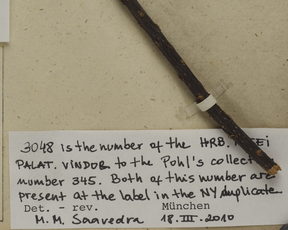 3048 is the number of the HRB. MUSEI
PALAT. VINDOB to the Pohl's collect
number 345. Both of this number are
present at the label in the NY duplicate
Det. - rev. München
M.M. Saavedra 18.III.2010